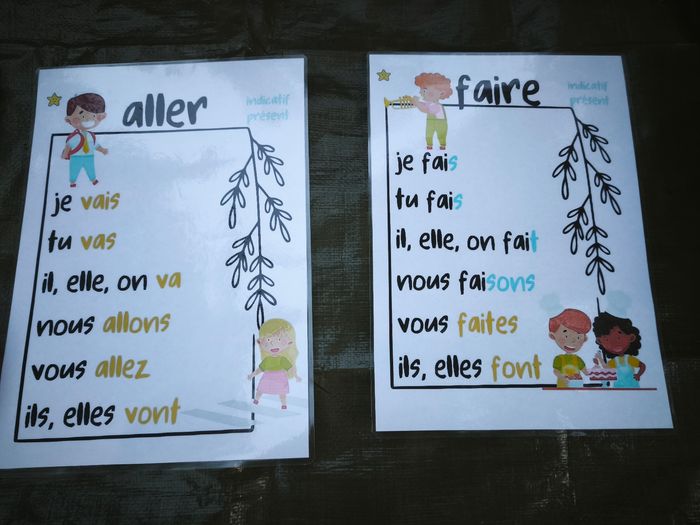 aller
indicatif
présent
je vais
tu vas
il, elle, on va
nous allons
vous allez
ils, elles vont
faire
indicatif
présent
je fais
tu fais
il, elle, on fait
nous faisons
vous faites
ils, elles font